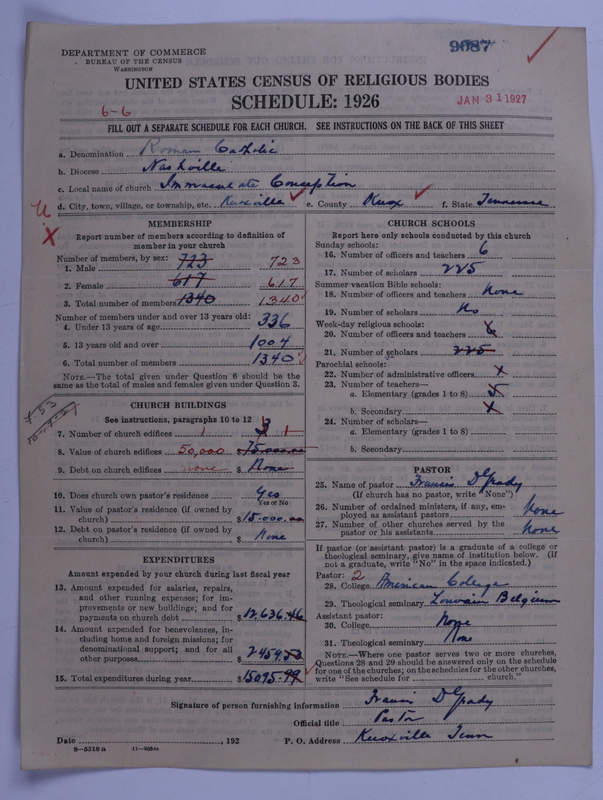 DEPARTMENT OF COMMERCE
BUREAU OF THE CENSUS
WASHINGTON
9087
UNITED STATES CENSUS OF RELIGIOUS BODIES
SCHEDULE: 1926
6-6
JAN 31 1927
FILL OUT A SEPARATE SCHEDULE FOR EACH CHURCH. SEE INSTRUCTIONS ON THE BACK OF THIS SHEET
a. Denomination Roman Catholic
b. Diocese Nashville
c. Local name of church Immaculate Conception
d. City, town, village, or township, etc. Knoxville e. County Knox f. State Tennessee
MEMBERSHIP
Report number of members according to definition of
member in your church
Number of members, by sex:
1. Male 723 723
2. Female 617 617
3. Total number of members 1340 1340
Number of members under and over 13 years old:
4. Under 13 years of age 336
5. 13 years old and over 1004
6. Total number of members 1340
NOTE.—The total given under Question 6 should be the
same as the total of males and females given under Question 3.
CHURCH BUILDINGS
See instructions, paragraphs 10 to 12
7. Number of church edifices 1 3 1
8. Value of church edifices 50,000 $ 75.000.00
9. Debt on church edifices none $ None
10. Does church own pastor's residence Yes
Yes or No
11. Value of pastor's residence (if owned by
church) $ 15.000.00
12. Debt on pastor's residence (if owned by
church) $ None
EXPENDITURES
Amount expended by your church during last fiscal year
13. Amount expended for salaries, repairs,
and other running expenses; for im-
provements or new buildings; and for
payments on church debt $ 12,636.46
14. Amount expended for benevolences, in-
cluding home and foreign missions; for
denominational support; and for all
other purposes $ 2459.53
15. Total expenditures during year $ 15095.99
CHURCH SCHOOLS
Report here only schools conducted by this church
Sunday schools:
16. Number of officers and teachers 6
17. Number of scholars 225
Summer vacation Bible schools:
18. Number of officers and teachers None
19. Number of scholars No
Week-day religious schools:
20. Number of officers and teachers 6
21. Number of scholars 225
Parochial schools:
22. Number of administrative officers
23. Number of teachers—
a. Elementary (grades 1 to 8) 5
b. Secondary
24. Number of scholars—
a. Elementary (grades 1 to 8)
b. Secondary
PASTOR
25. Name of pastor Francis D Grady
(If church has no pastor, write "None")
26. Number of ordained ministers, if any, em-
ployed as assistant pastors None
27. Number of other churches served by the
pastor or his assistants None
If pastor (or assistant pastor) is a graduate of a college or
theological seminary, give name of institution below. (If
not a graduate, write "No" in the space indicated.)
Pastor: 2
28. College American College
29. Theological seminary Louvain Belgium
Assistant pastor:
30. College None
31. Theological seminary None
NOTE.—Where one pastor serves two or more churches,
Questions 28 and 29 should be answered only on the schedule
for one of the churches; on the schedules for the other churches,
write "See schedule for church."
Signature of person furnishing information Francis D Grady
Official title Pastor
Date , 192 P. O. Address Knoxville Tenn
8-5518 a